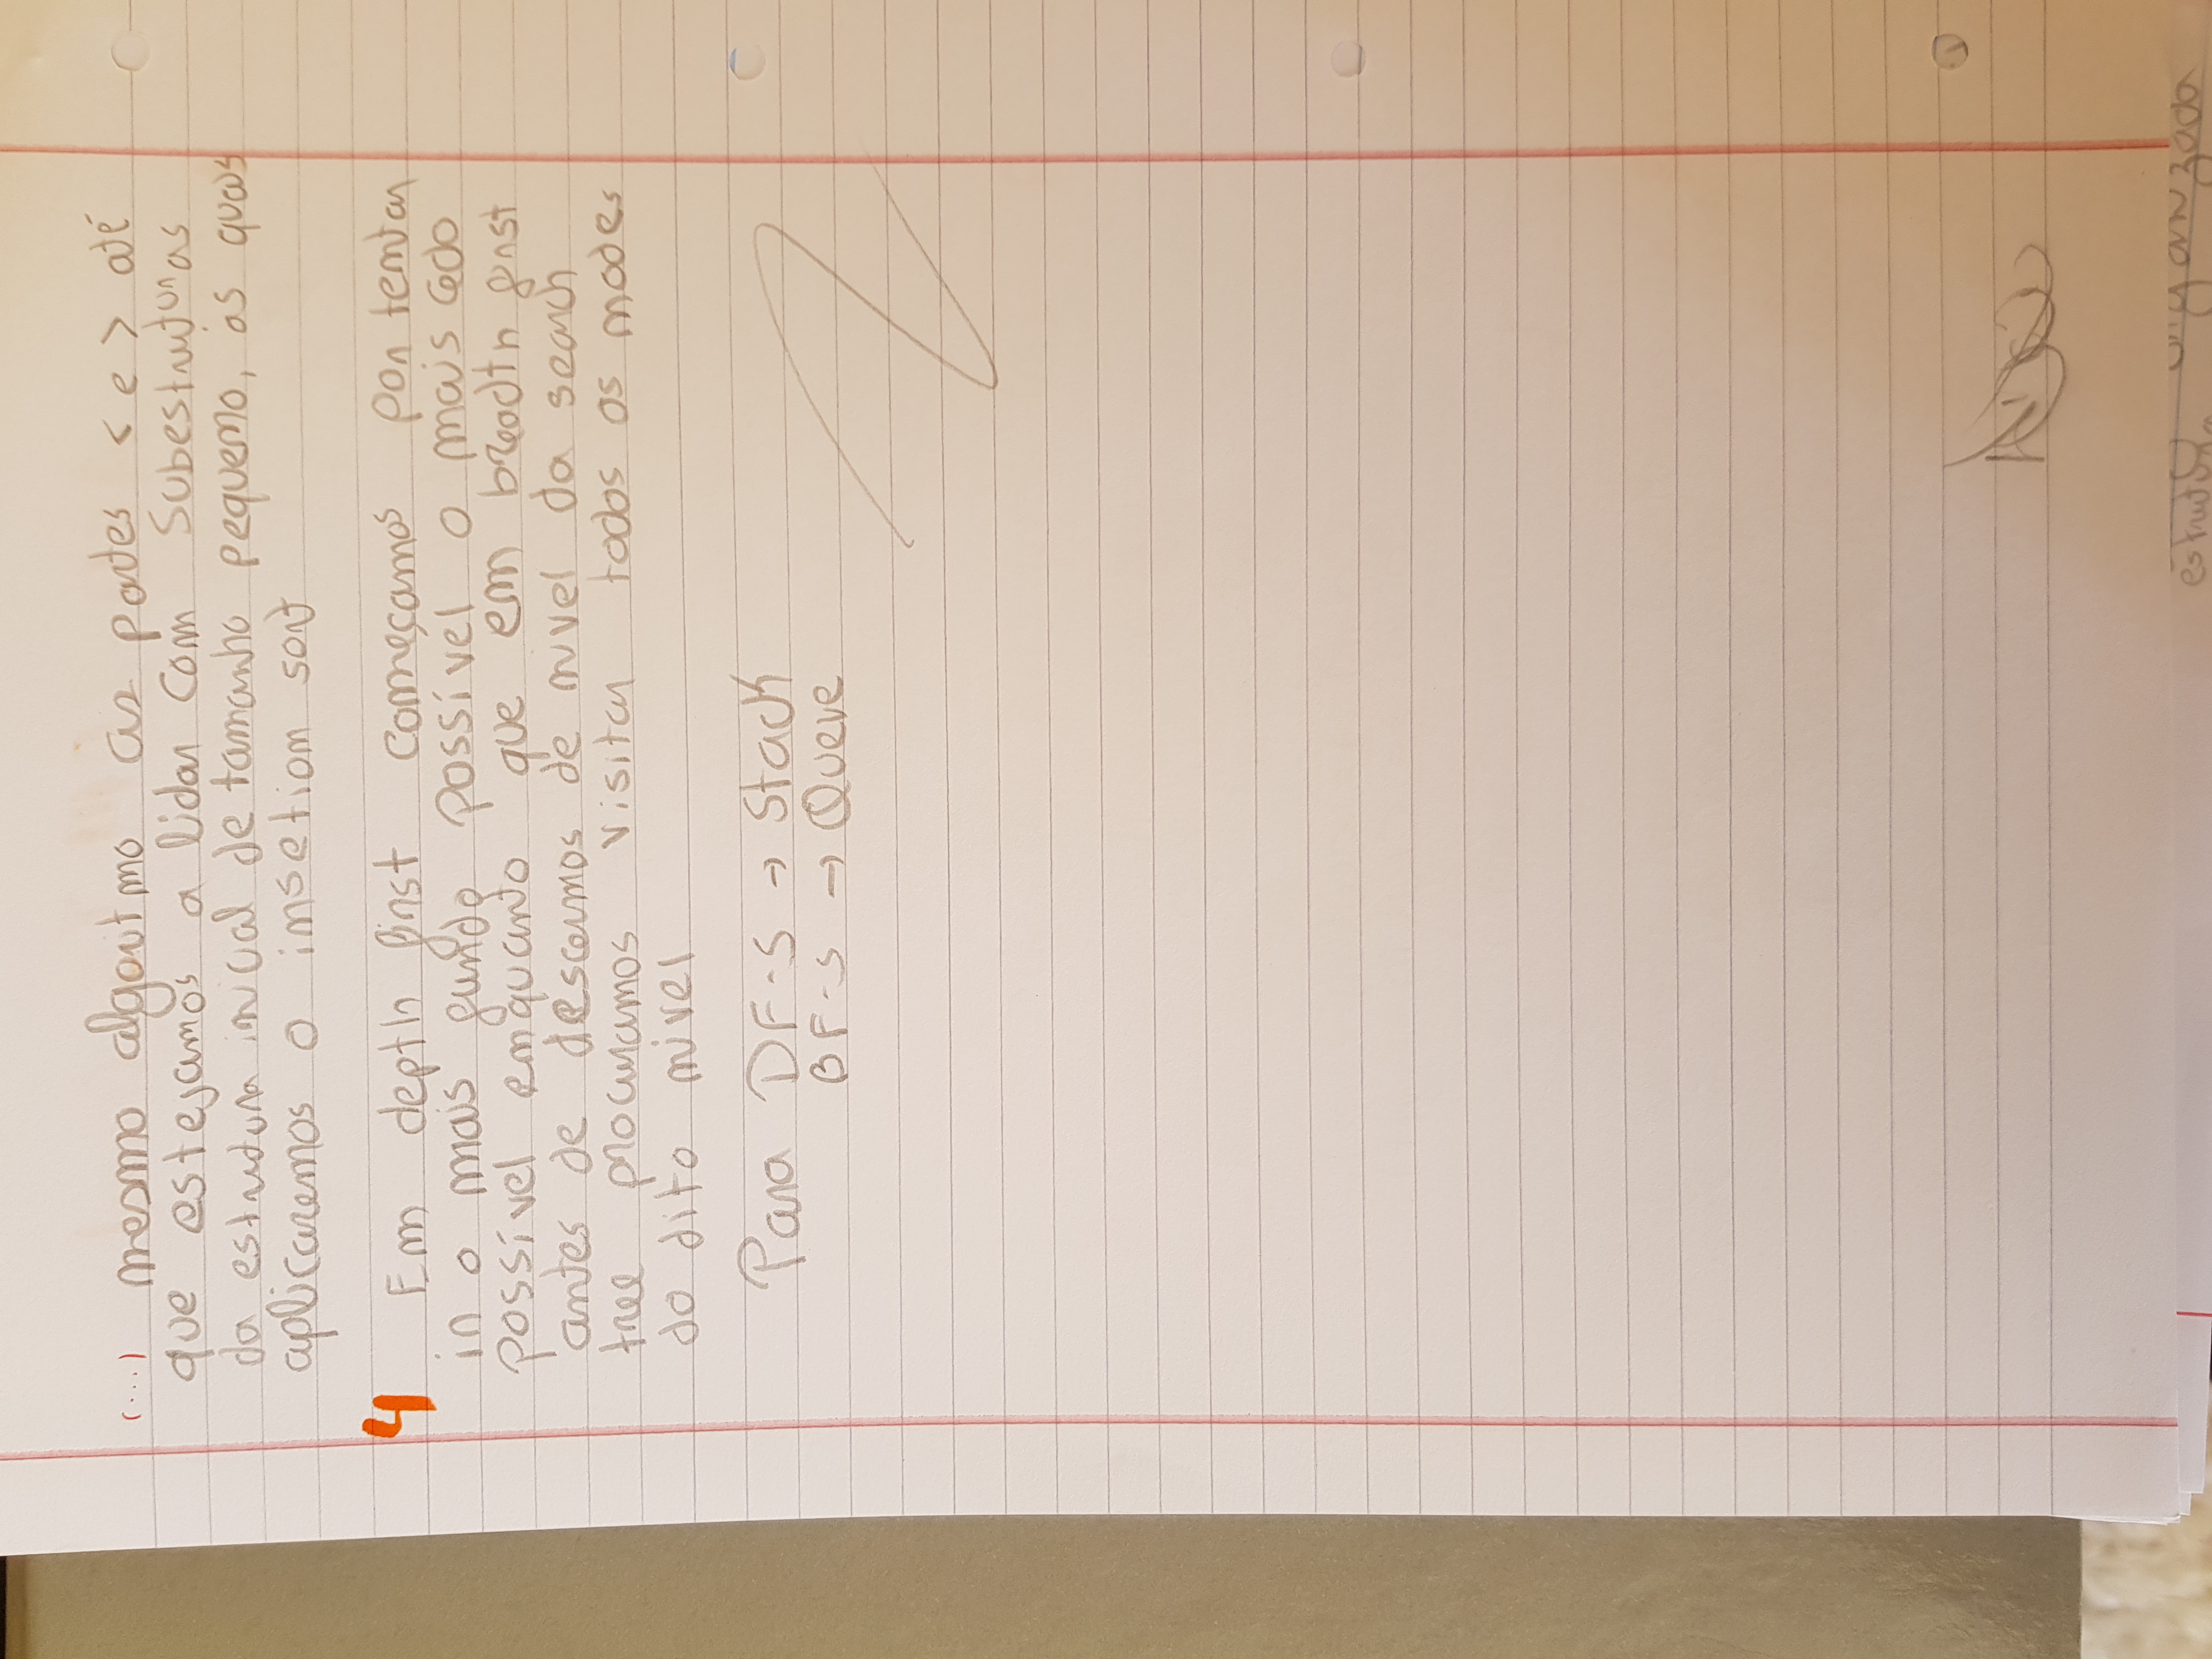 (....) mesmo algoritmo às partes < e > até
que estejamos a lidar com subestruturas
da estrutura inicial de tamanho pequeno, às quais
aplicaremos o insetion sort
4 Em depth first começamos por tentar
ir o mais fundo possível o mais cedo
possível enquanto que em breadth first
antes de descermos de nivel da search
tree procuramos visitar todos os nodes
do dito nivel
Para DF-S → Stack
BF-S → Queue
organizada
estrutura